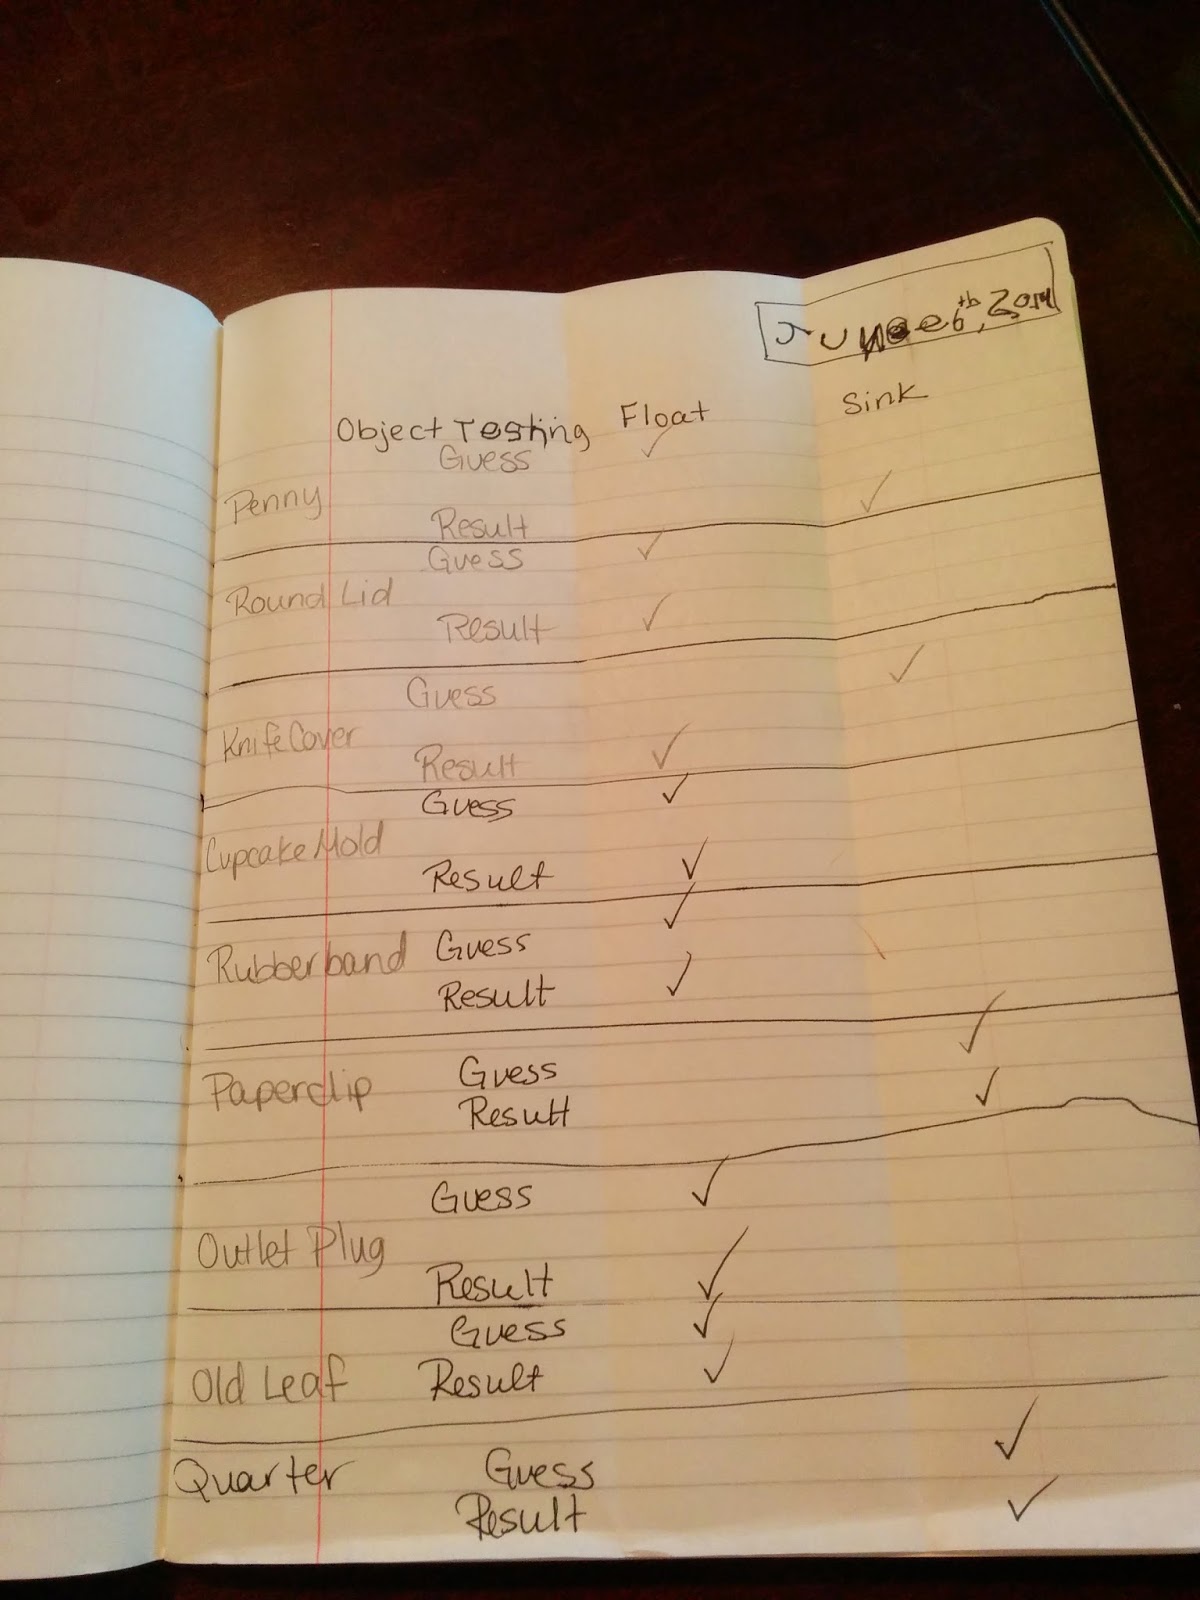 June 6th, 2014
Object Testing Float Sink
Guess ✓
Penny ✓
Result
Guess ✓
Round Lid
Result ✓
Guess ✓
Knife Cover
Result ✓
Guess ✓
Cupcake Mold
Result ✓
Rubberband Guess ✓
Result ✓
Guess ✓
Paperclip
Result ✓
Guess ✓
Outlet Plug
Result ✓
Guess ✓
Old Leaf Result ✓
Quarter Guess ✓
Result ✓